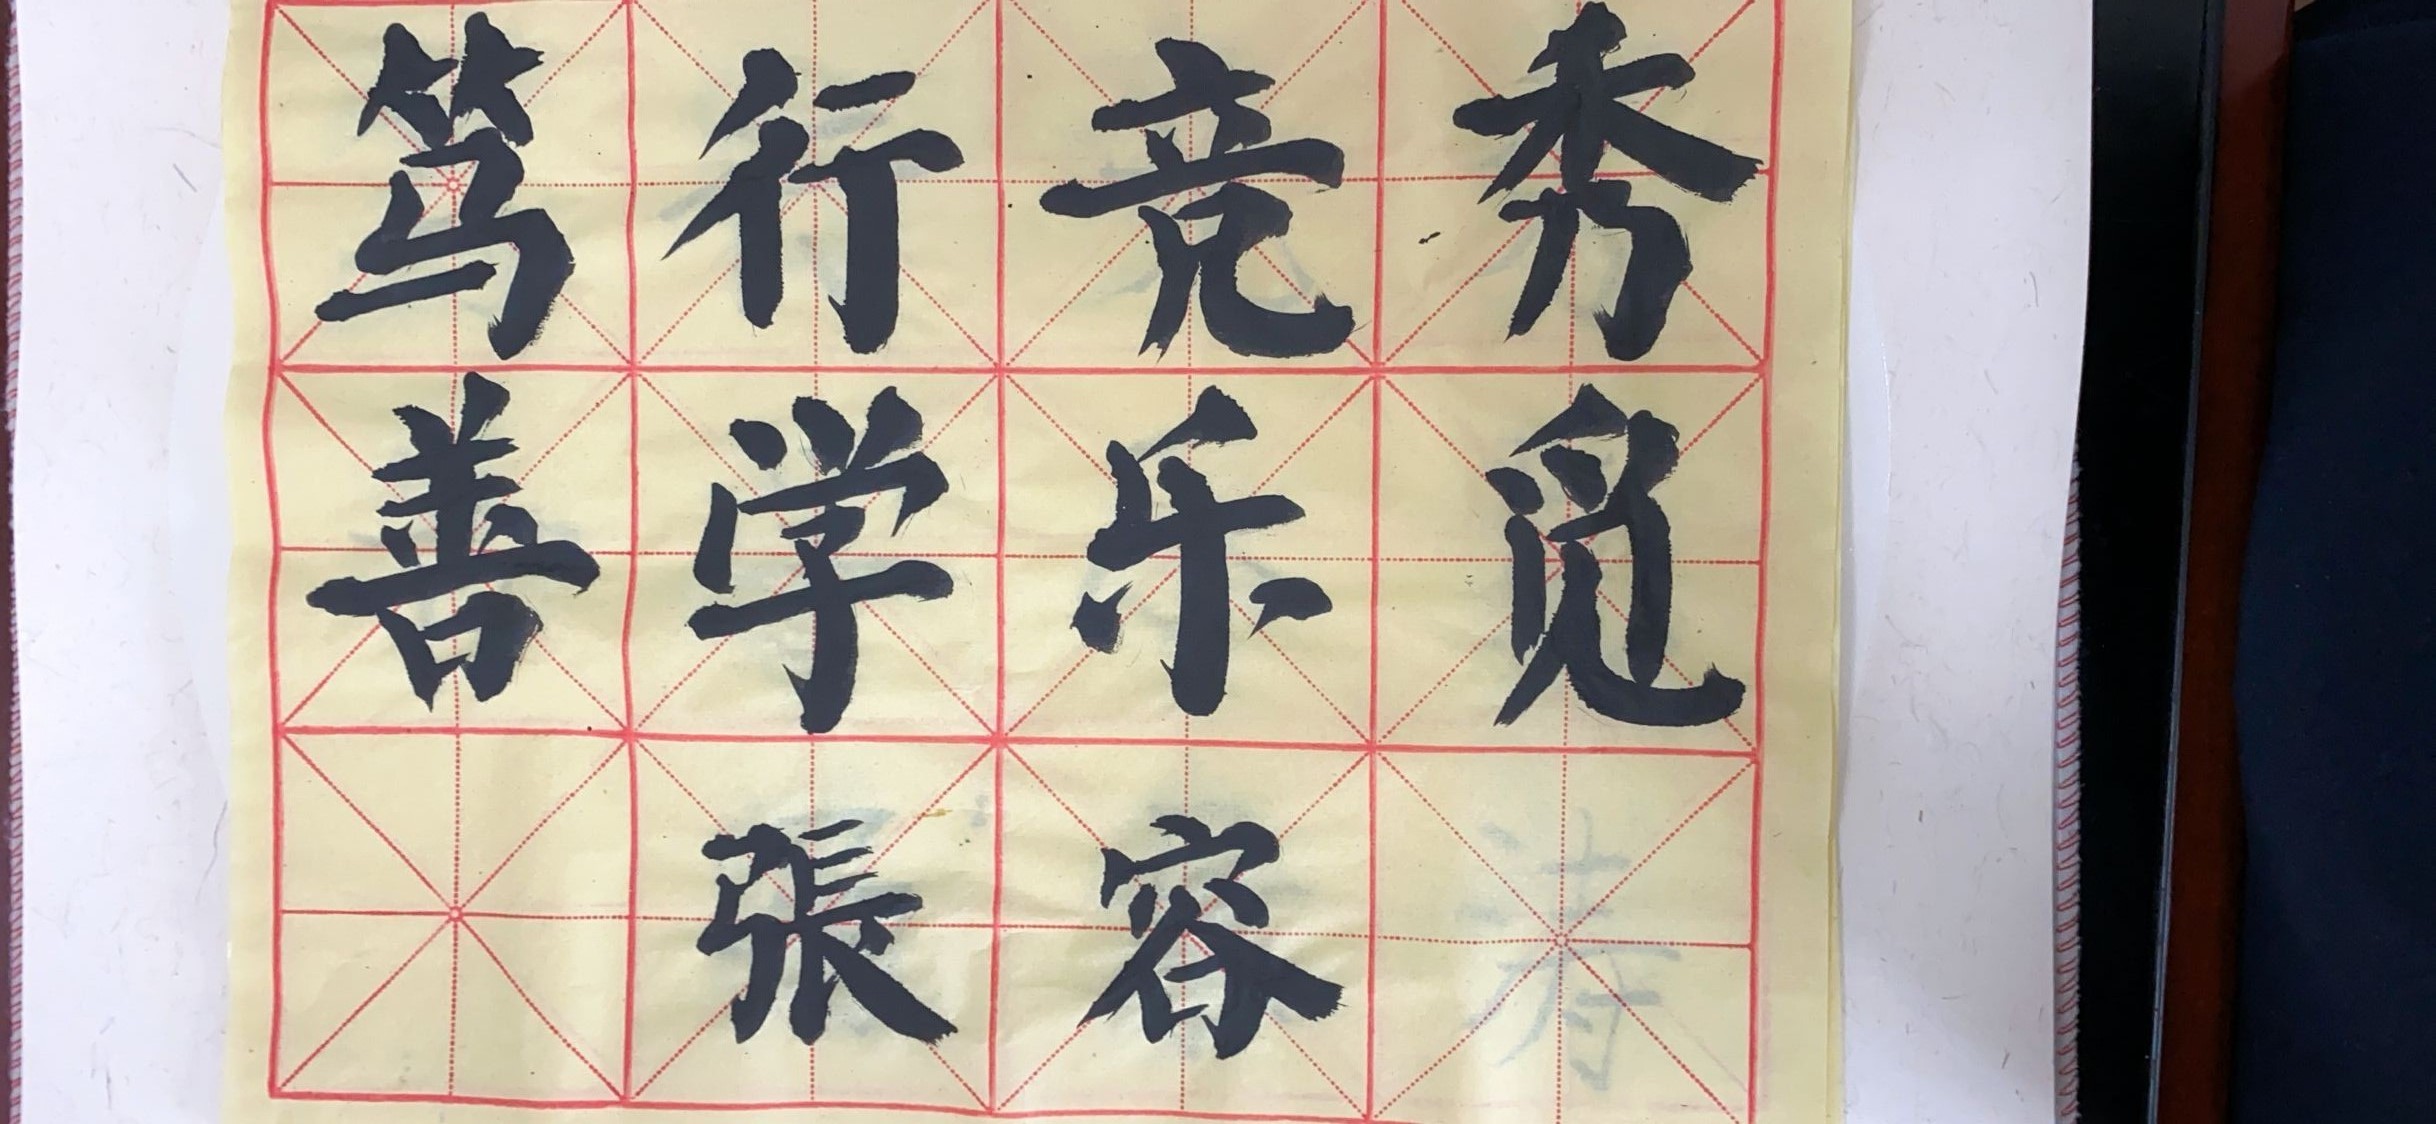 笃行竞秀
善学乐觅
張容